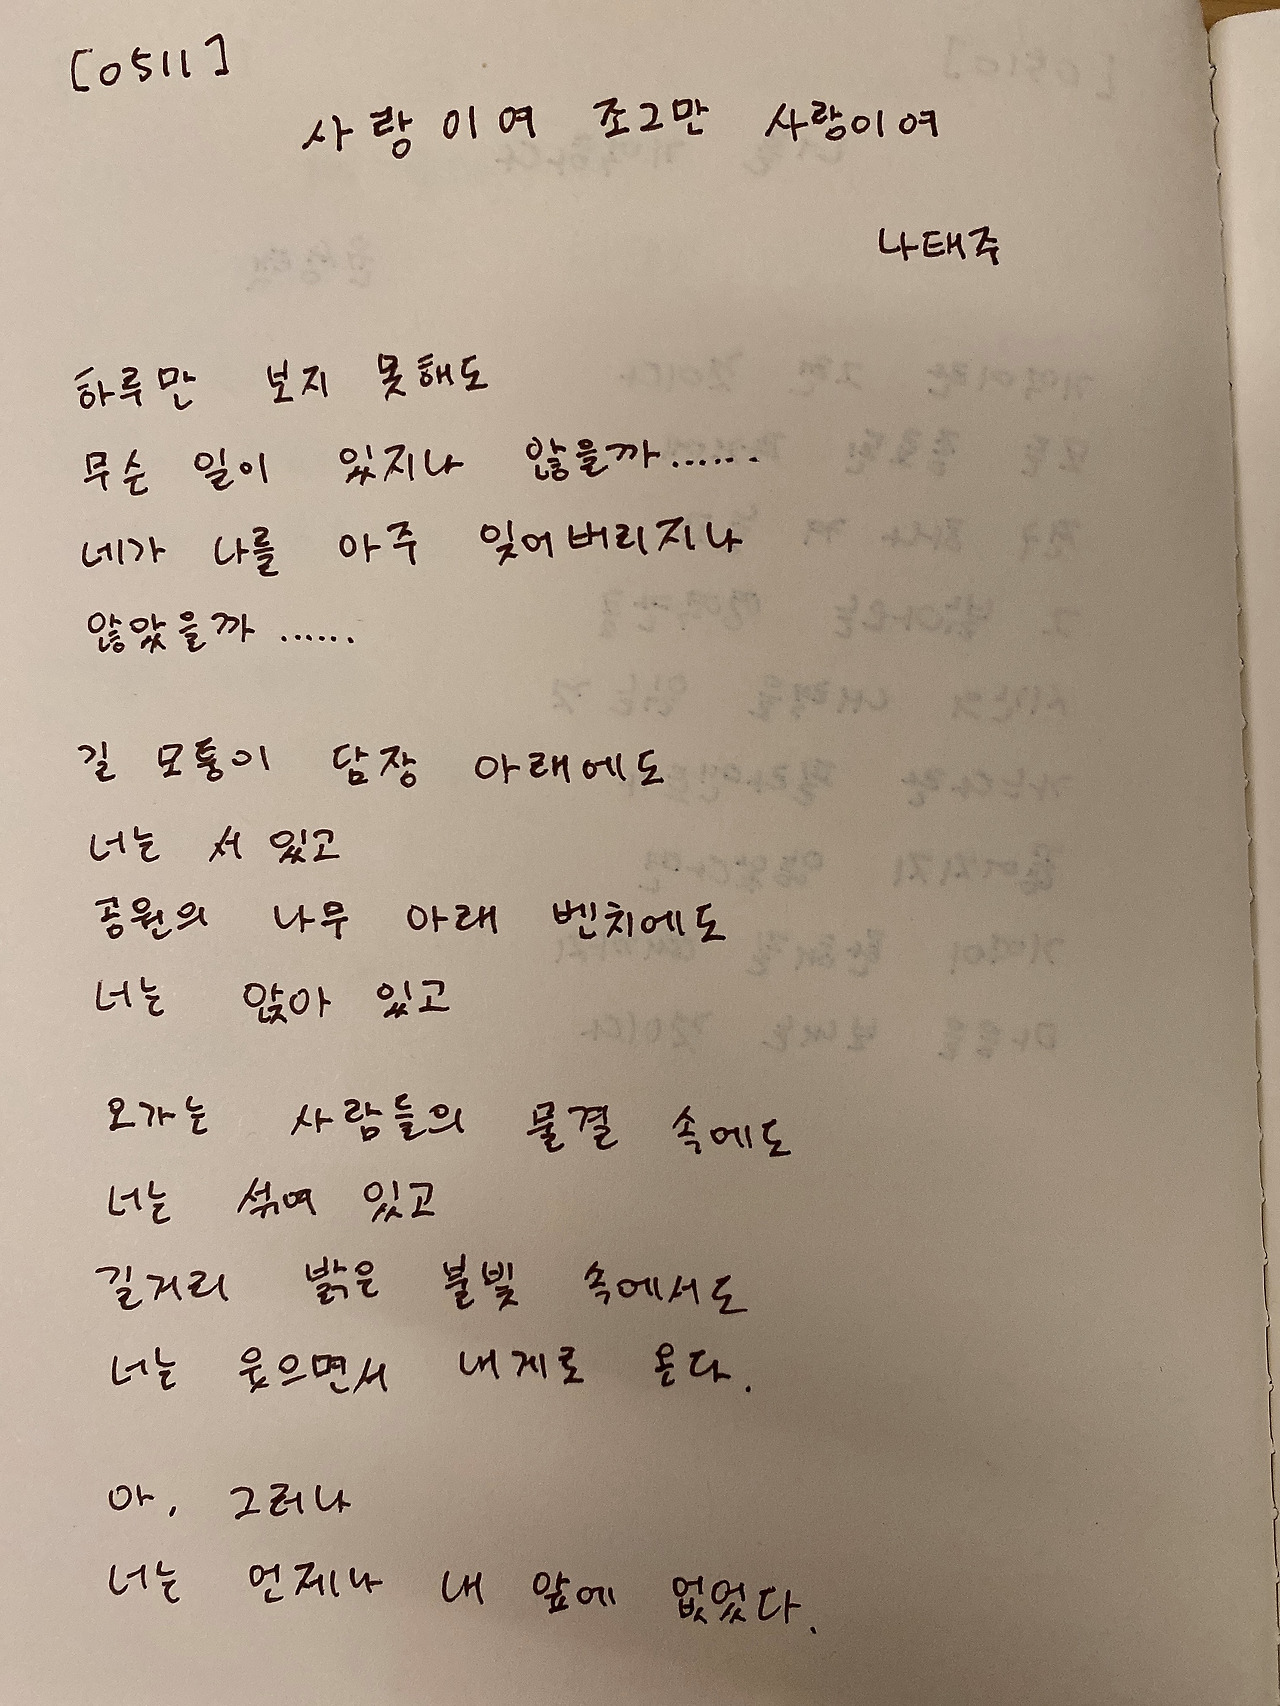 [0511]
사랑이여 조그만 사랑이여
나태주
하루만 보지 못해도
무슨 일이 있지나 않을까......
네가 나를 아주 잊어버리지나
않았을까 ......
길 모퉁이 담장 아래에도
너는 서 있고
공원의 나무 아래 벤치에도
너는 앉아 있고
오가는 사람들의 물결 속에도
너는 섞여 있고
길거리 밝은 불빛 속에서도
너는 웃으면서 내게로 온다.
아, 그러나
너는 언제나 내 앞에 없었다.